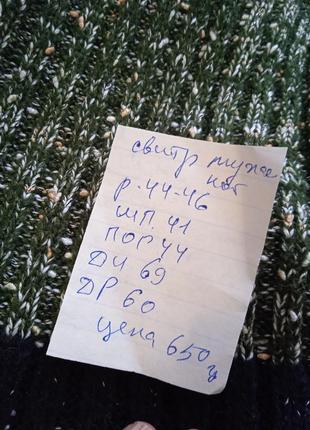 свитр муже
кот
р-44-46
шп. 41
пог 44
ди 69
др 60
цена 650